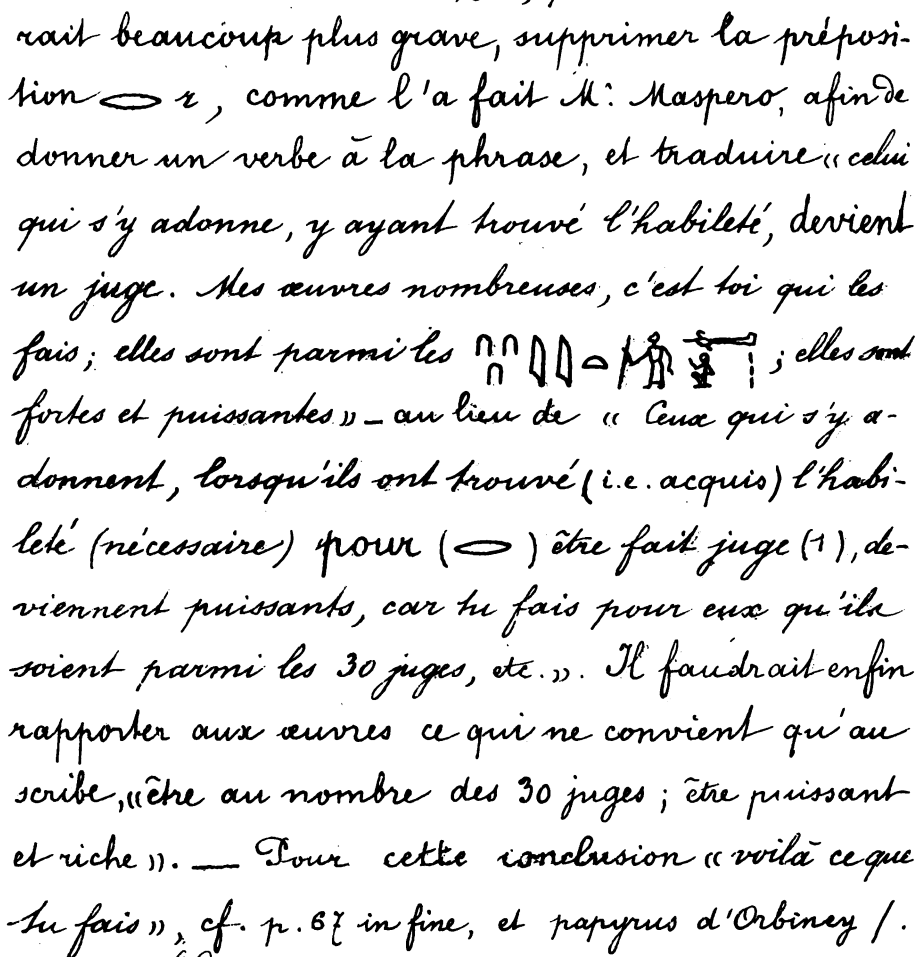 rait beaucoup plus grave, supprimer la préposi-
tion 𓂋 r, comme l'a fait Mr. Maspero, afin de
donner un verbe à la phrase, et traduire « celui
qui s'y adonne, y ayant trouvé l'habileté, devient
un juge. Mes œuvres nombreuses, c'est toi qui les
fais ; elles sont parmi les ; elles sont
fortes et puissantes » — au lieu de « Ceux qui s'y a-
donnent, lorsqu'ils ont trouvé (i.e. acquis) l'habi-
leté (nécessaire) pour (𓂋) être fait juge (1), de-
viennent puissants, car tu fais pour eux qu'ils
soient parmi les 30 juges, etc. ». Il faudrait enfin
rapporter aux œuvres ce qui ne convient qu'au
scribe, « être au nombre des 30 juges ; être puissant
et riche ». — Pour cette conclusion « voilà ce que
tu fais », cf. p. 67 in fine, et papyrus d'Orbiney /.